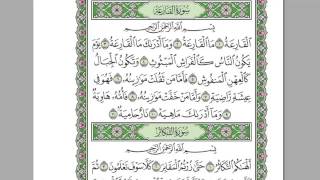 سُورَةُ القَارِعَةِ
بِسْمِ اللَّهِ الرَّحْمَٰنِ الرَّحِيمِ
الْقَارِعَةُ ۝ مَا الْقَارِعَةُ ۝ وَمَا أَدْرَىٰكَ مَا الْقَارِعَةُ ۝ يَوْمَ
يَكُونُ النَّاسُ كَالْفَرَاشِ الْمَبْثُوثِ ۝ وَتَكُونُ الْجِبَالُ
كَالْعِهْنِ الْمَنفُوشِ ۝ فَأَمَّا مَن ثَقُلَتْ مَوَازِينُهُ ۝ فَهُوَ فِي
عِيشَةٍ رَّاضِيَةٍ ۝ وَأَمَّا مَنْ خَفَّتْ مَوَازِينُهُ ۝ فَأُمُّهُ هَاوِيَةٌ
۝ وَمَا أَدْرَىٰكَ مَا هِيَهْ ۝ نَارٌ حَامِيَةٌ ۝
سُورَةُ التَّكَاثُرِ
بِسْمِ اللَّهِ الرَّحْمَٰنِ الرَّحِيمِ
أَلْهَىٰكُمُ التَّكَاثُرُ ۝ حَتَّىٰ زُرْتُمُ الْمَقَابِرَ ۝ كَلَّا سَوْفَ تَعْلَمُونَ ۝ ثُمَّ